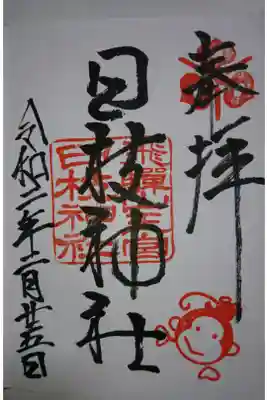 奉拝
日枝神社
飛驒山王宮
日枝神社
令和二年二月廿五日